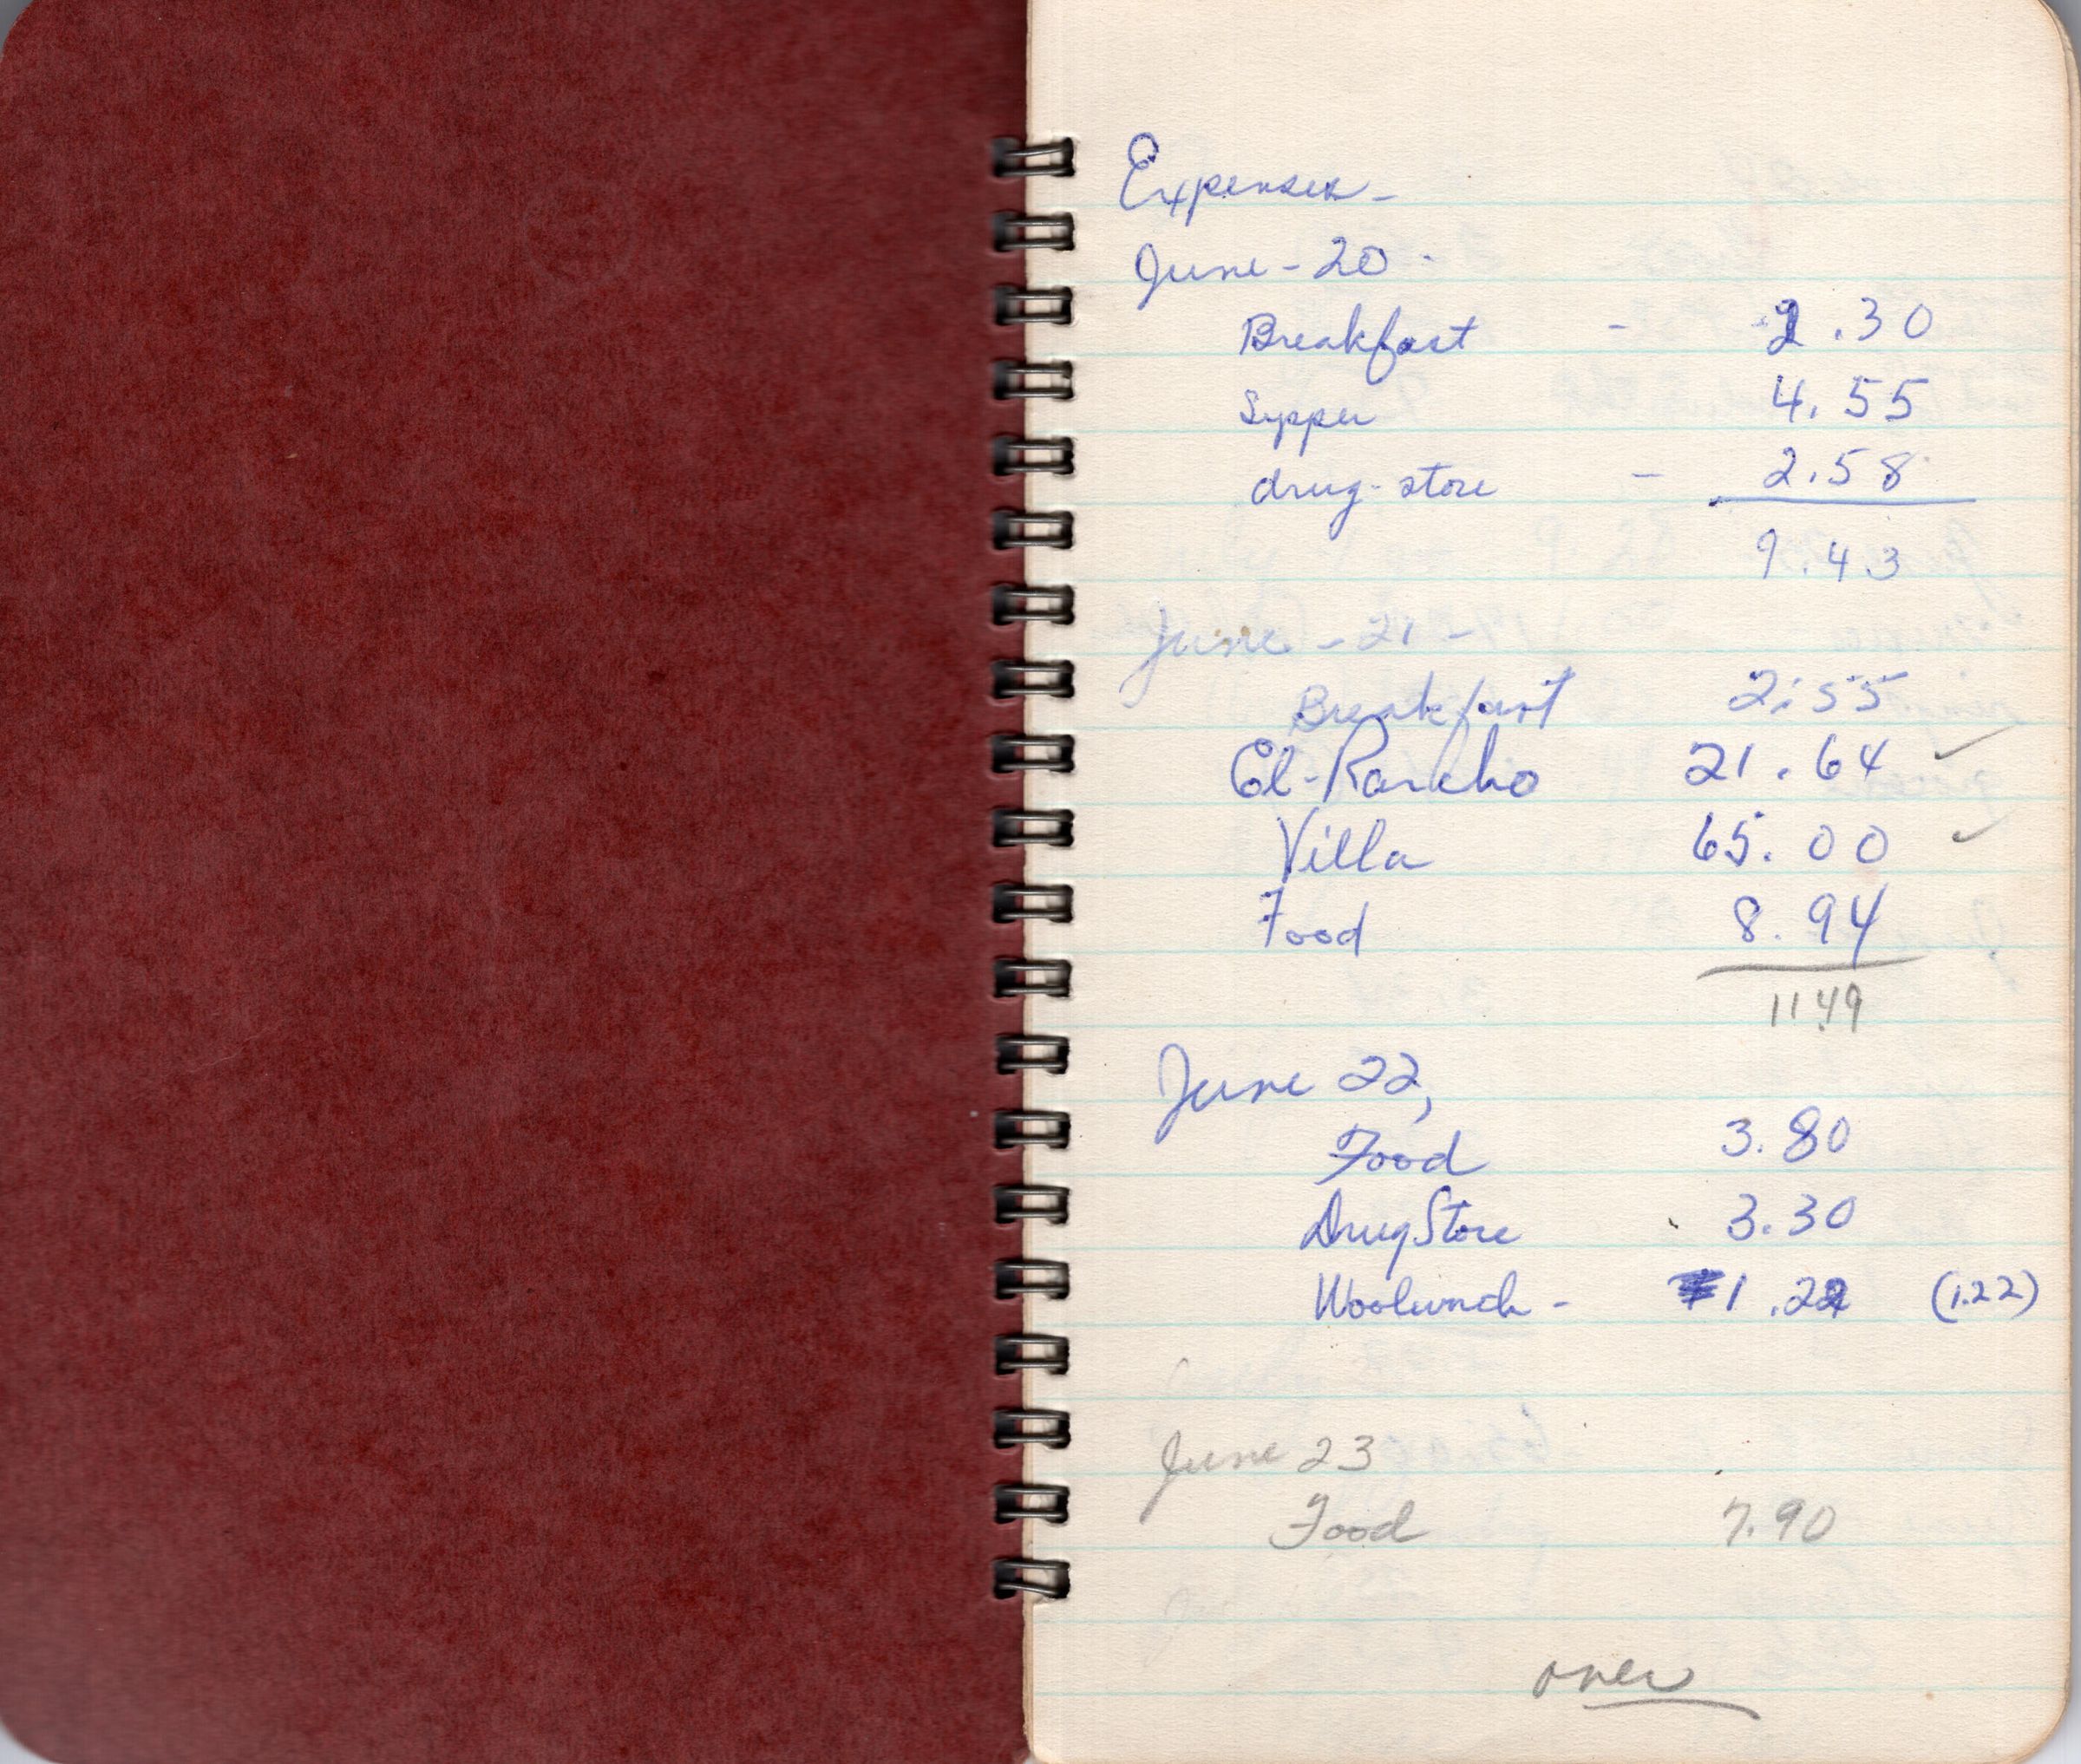 Expenses -
June - 20 -
Breakfast - 2.30
Supper 4.55
drug-store - 2.58
9.43
June - 21 -
Breakfast 2.55
El-Rancho 21.64 ✓
Villa 65.00 ✓
Food 8.94
11.49
June 22,
Food 3.80
Drug Store 3.30
- 1.22 (1.22)
June 23
Food 7.90
over